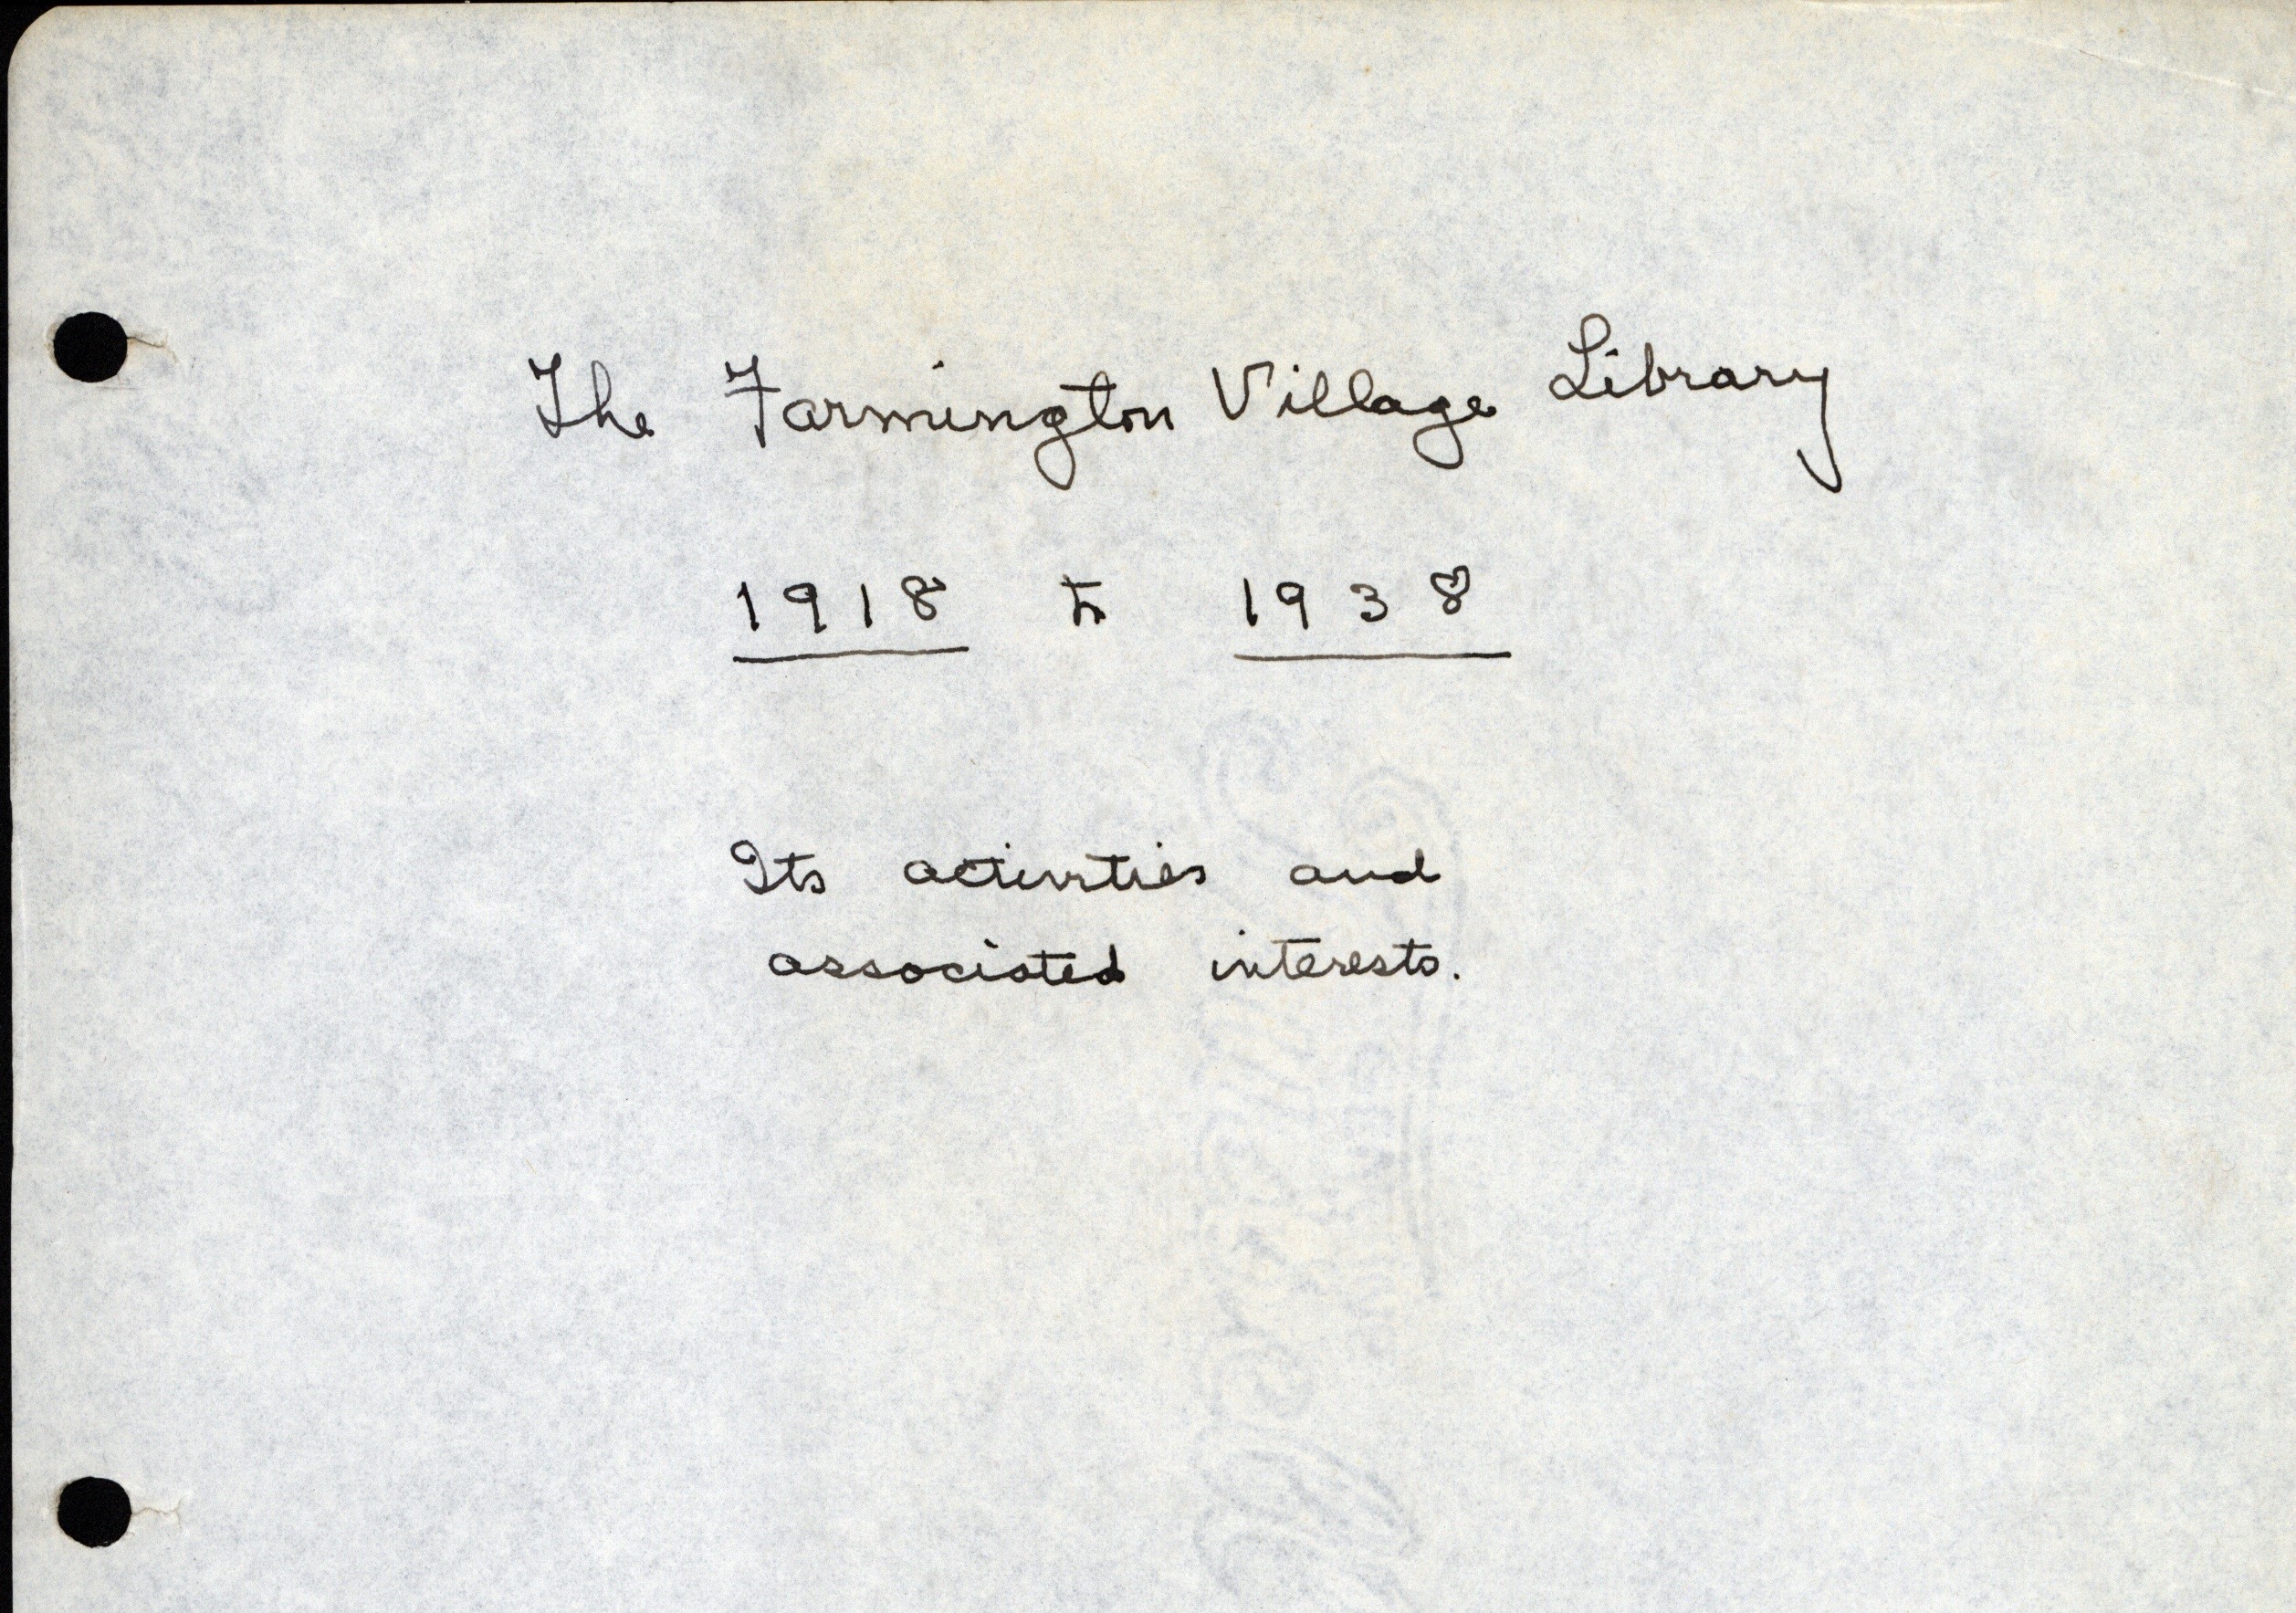 The Farmington Village Library
1918 to 1938
Its activities and
associated interests.